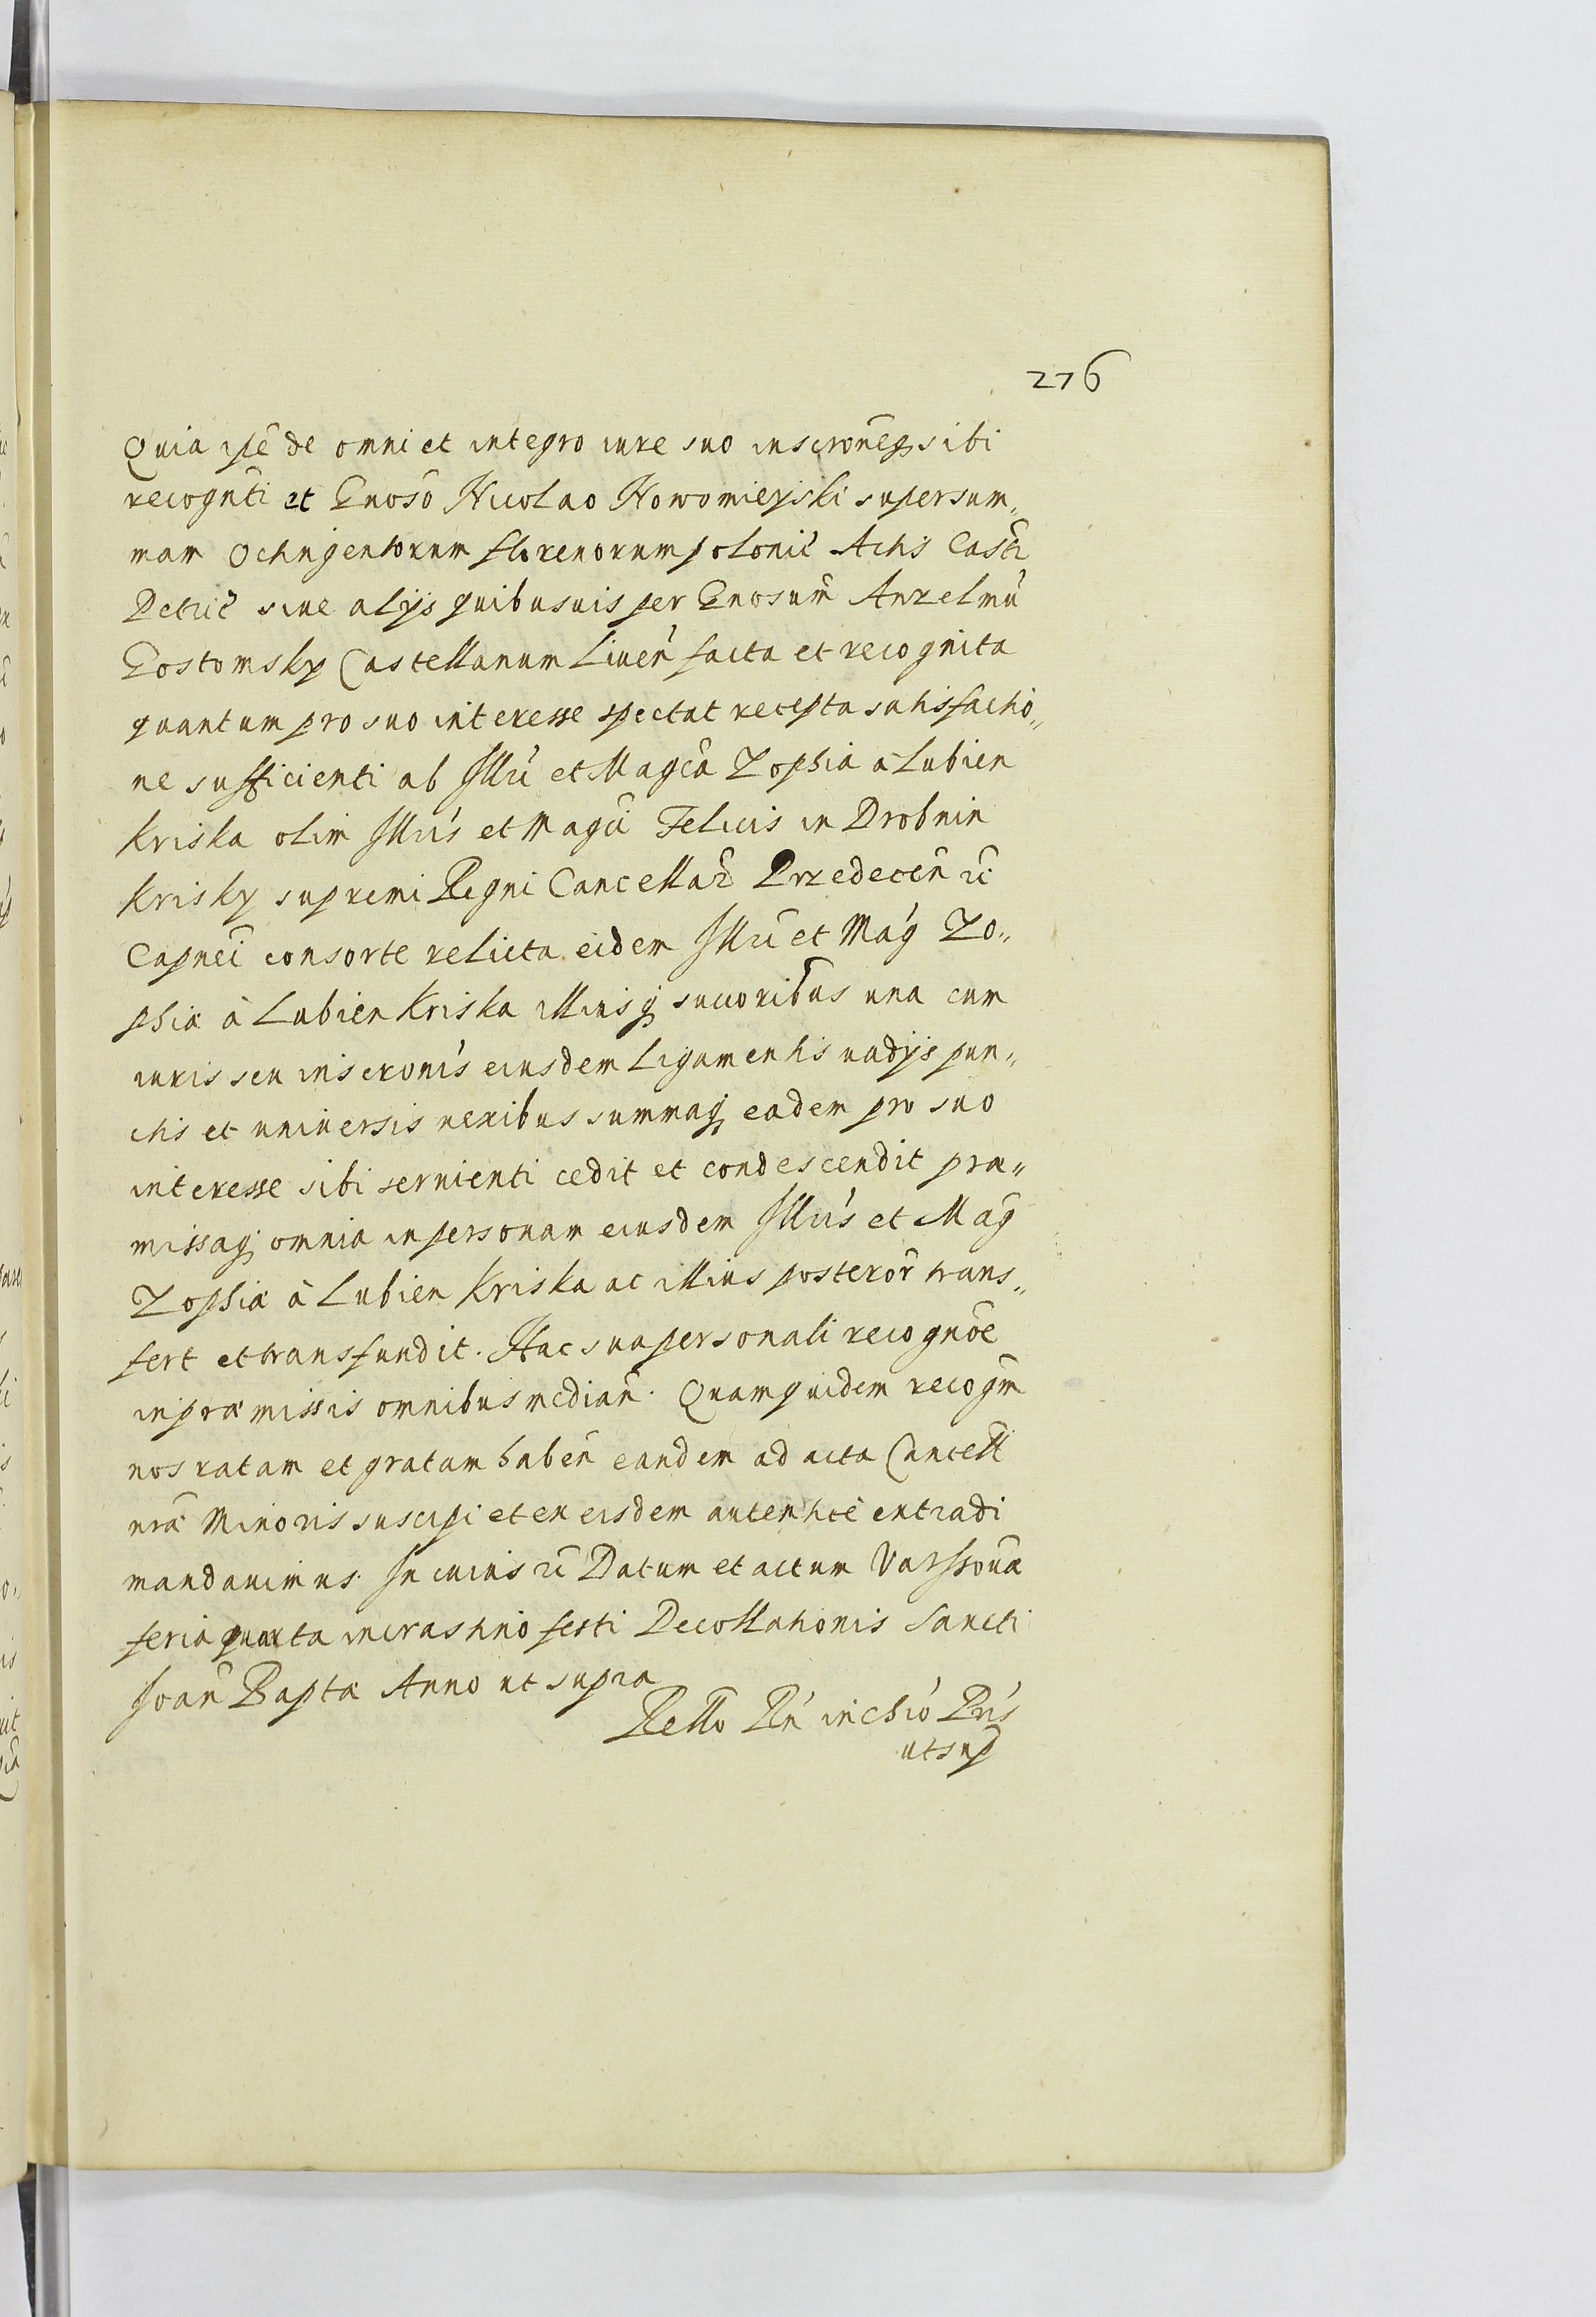 276
Quia ipē de omni et integro iure suo inscronēq; sibi
recognīti et Gnosō Nicolao Nowomieyski super sum„
mam Octingentorum florenorum polonic̄ Actis Castr̄
Petric̄ siue alijs quibusuis per Gnosum̄ Anzelmū
Gostomsky Castellanum Liuen̄ facta et recognita
quantum pro suo interesse spectat recepta satisfactio„
ne sufficienti ab Illri et Magca Zophia a Lubien
Kriska olim Illris et Magci Felicis in Drobnin
Krisky supremi Regni Cancellar̄ Przedecen̄ rc̄
Capnei consorte relicta eidem Illri et Mag Zo„
phiæ à Lubien Kriska illiusq; succoribus una cum
iuris seu inscronis eiusdem Ligamentis uadijs pun„
ctis et uniuersis nexibus summaq; eadem pro suo
interesse sibi seruienti cedit et condescendit præ„
missaq; omnia in personam eiusdem Illris et Mag
Zophiæ à Lubien Kriska ac illius posteror̄ trans„
fert et transfundit. Hac sua personali recognōe
in præmissis omnibus median̄. Quam quidem recogm̄
nos ratam et gratam haben̄ eandem ad acta Cancell
nræ Minoris suscipi et ex eisdem autentice extradi
mandauimus. In cuius rc̄ Datum et actum Varssouiæ
feria quarta in crastino festi Decollationis Sancti
Joan̄ Baptæ Anno ut supra
Rello Rn̄ in Chro Pris
ut sup